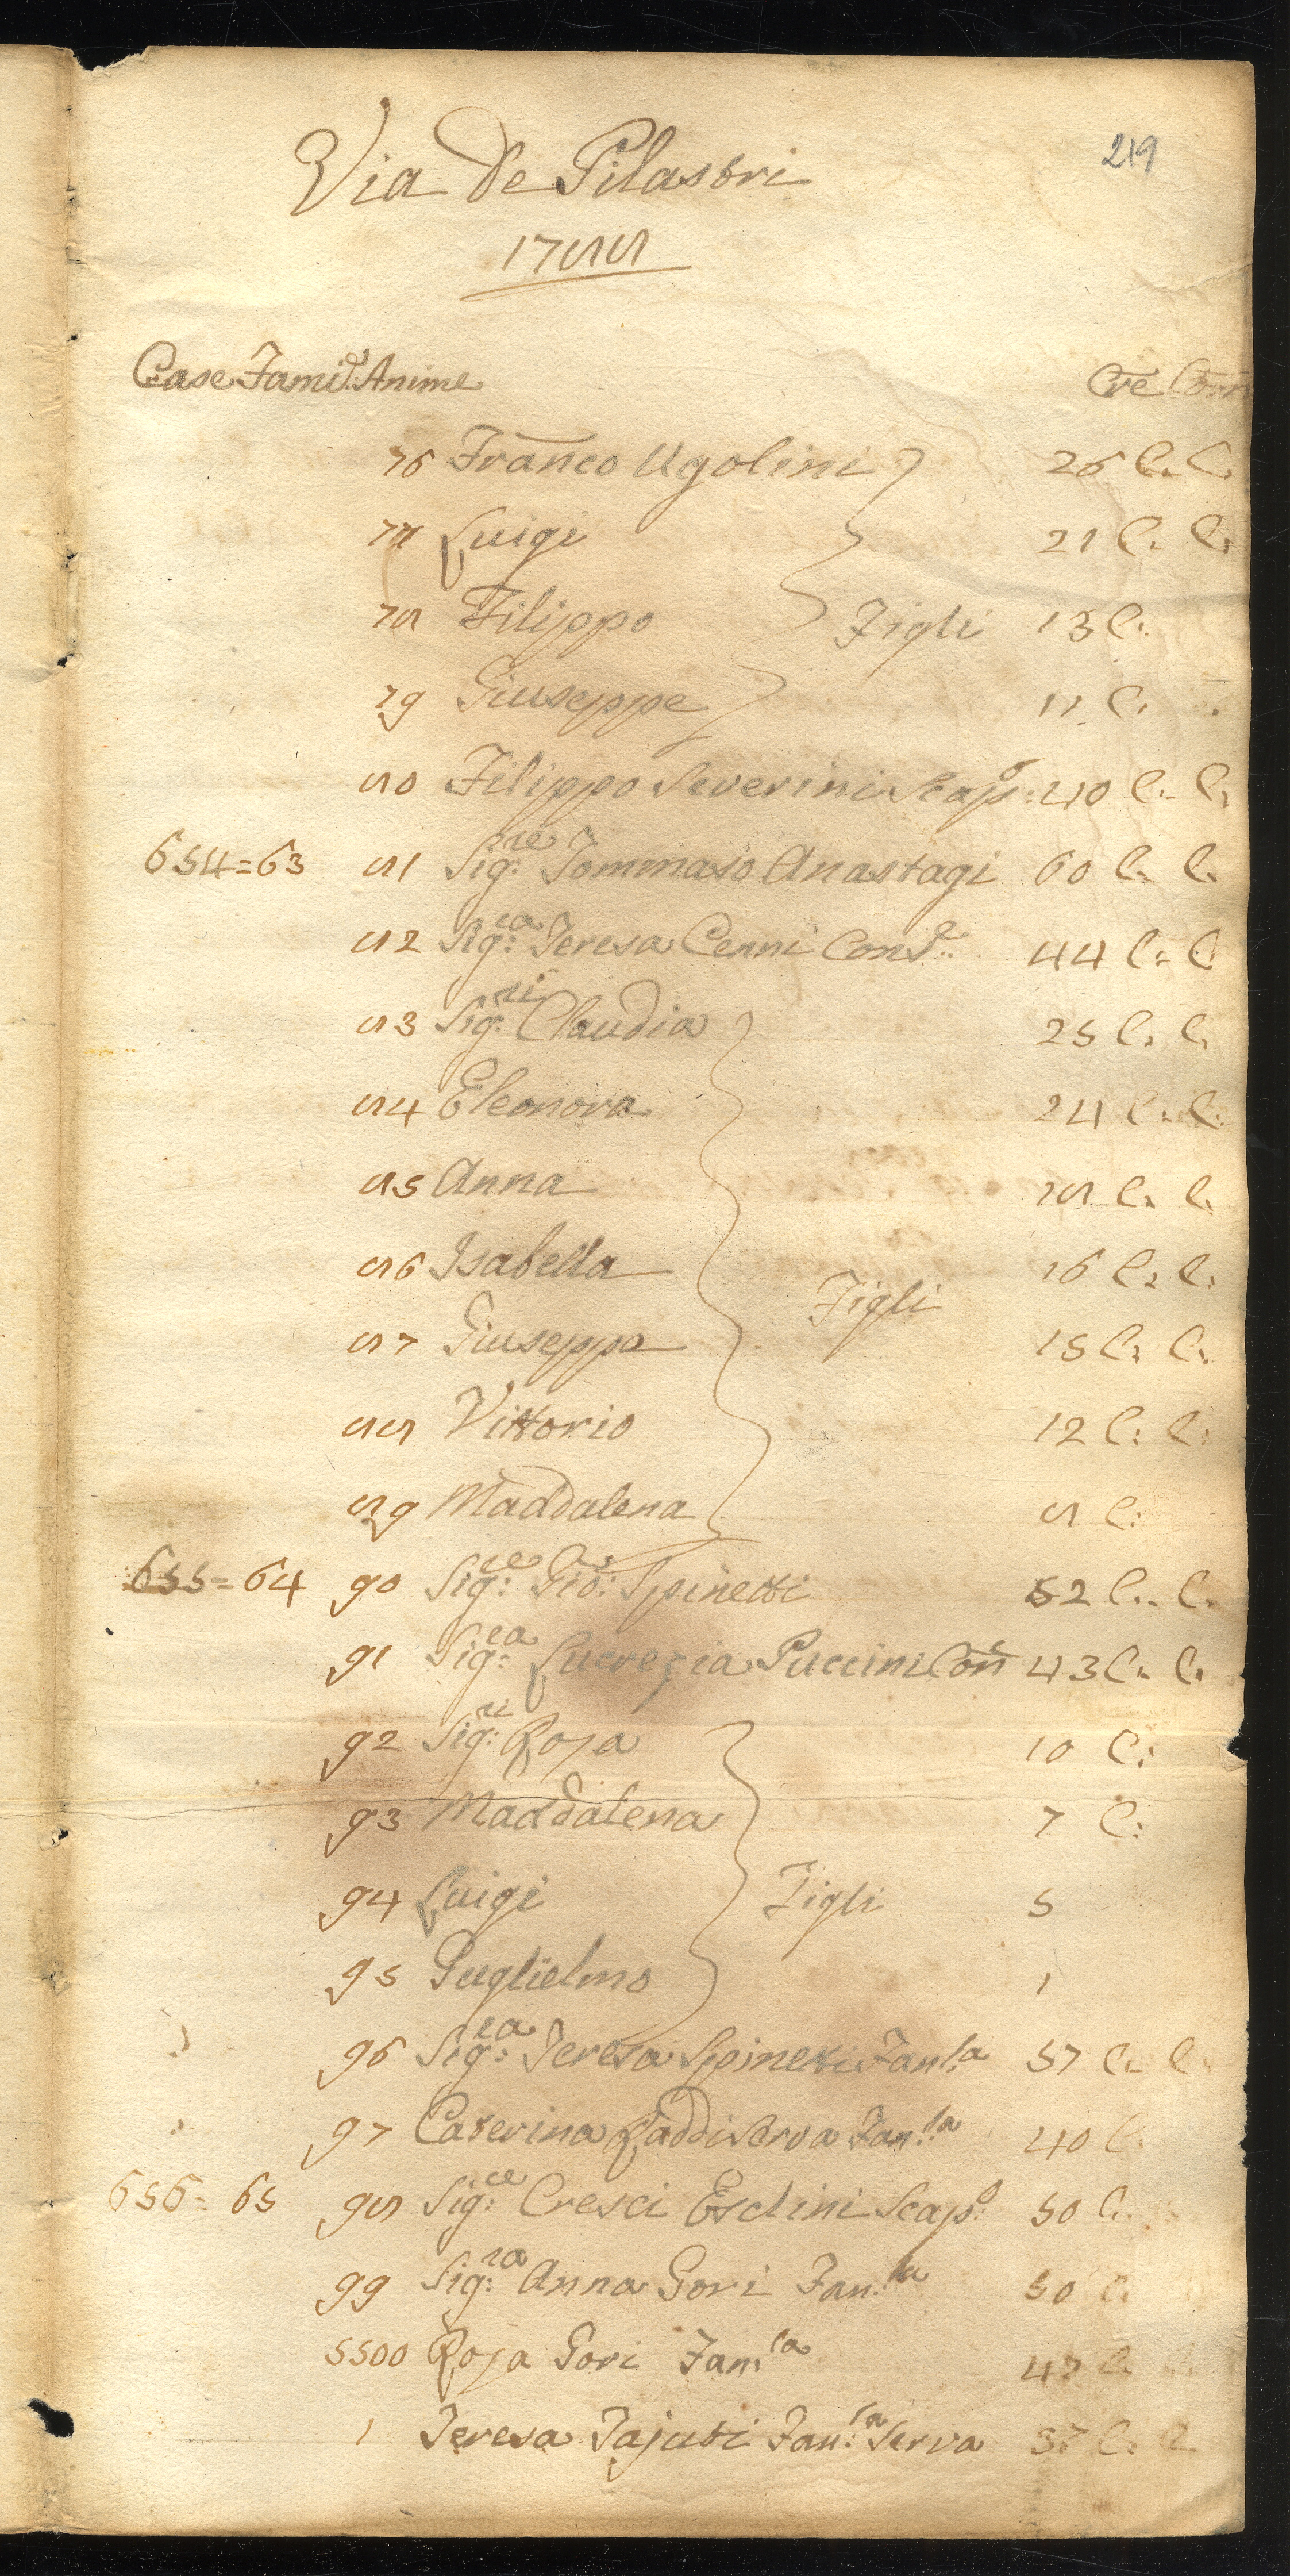 219
Via de Pilastri
1788
Case Famie: Anime Cre Com
76 Franco Ugolini 26 C. C.
77 Luigi 21 C. C.
78 Filippo Figli 13 C.
79 Giuseppe 11 C.
80 Filippo Severini Scapo: 40 C. C.
654=63 81 Sig:re Tommaso Anastagi 60 C. C.
82 Sig:ra Teresa Cenni Conse: 44 C. C
83 Sig:ri Claudia 25 C. C.
84 Eleonora 24 C. C.
85 Anna 18 C. C.
86 Isabella 16 C. C.
Figli
87 Giuseppa 15 C. C.
88 Vittorio 12 C. C.
89 Maddalena 8 C:
655=64 90 Sig:re Gio: Spinetti 52 C. C.
91 Sig:ra Lucrezia Puccini Con 43 C. C.
92 Sig:ri Rosa 10 C:
93 Maddalena 7 C:
94 Luigi Figli 5
95 Guglielmo 1
96 Sig:ra Teresa Spinetti Fan:la 57 C. C.
97 Caterina Raddi Serva Fan:la 40 C.
656=65 98 Sig:re Cresci Esclini Scap:o 50 C.
99 Sig:ra Anna Gori Fan:la 50 C.
5500 Rosa Gori Fan:la 47 C. C.
1 Teresa Tajuti Fan:la Serva 37 C. C.